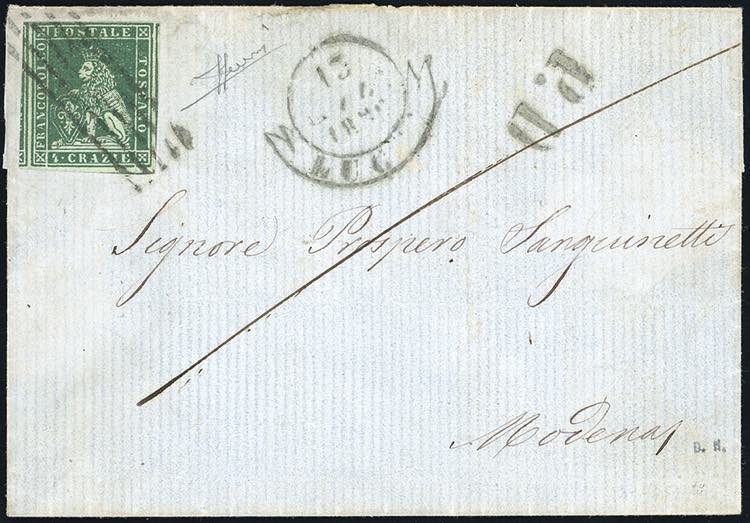 FRANCOBOLLO
POSTALE
TOSCANO
4 · CRAZIE
13
LUG
P. D.
Signore Prospero Sanguinetti
Modena
D. H.